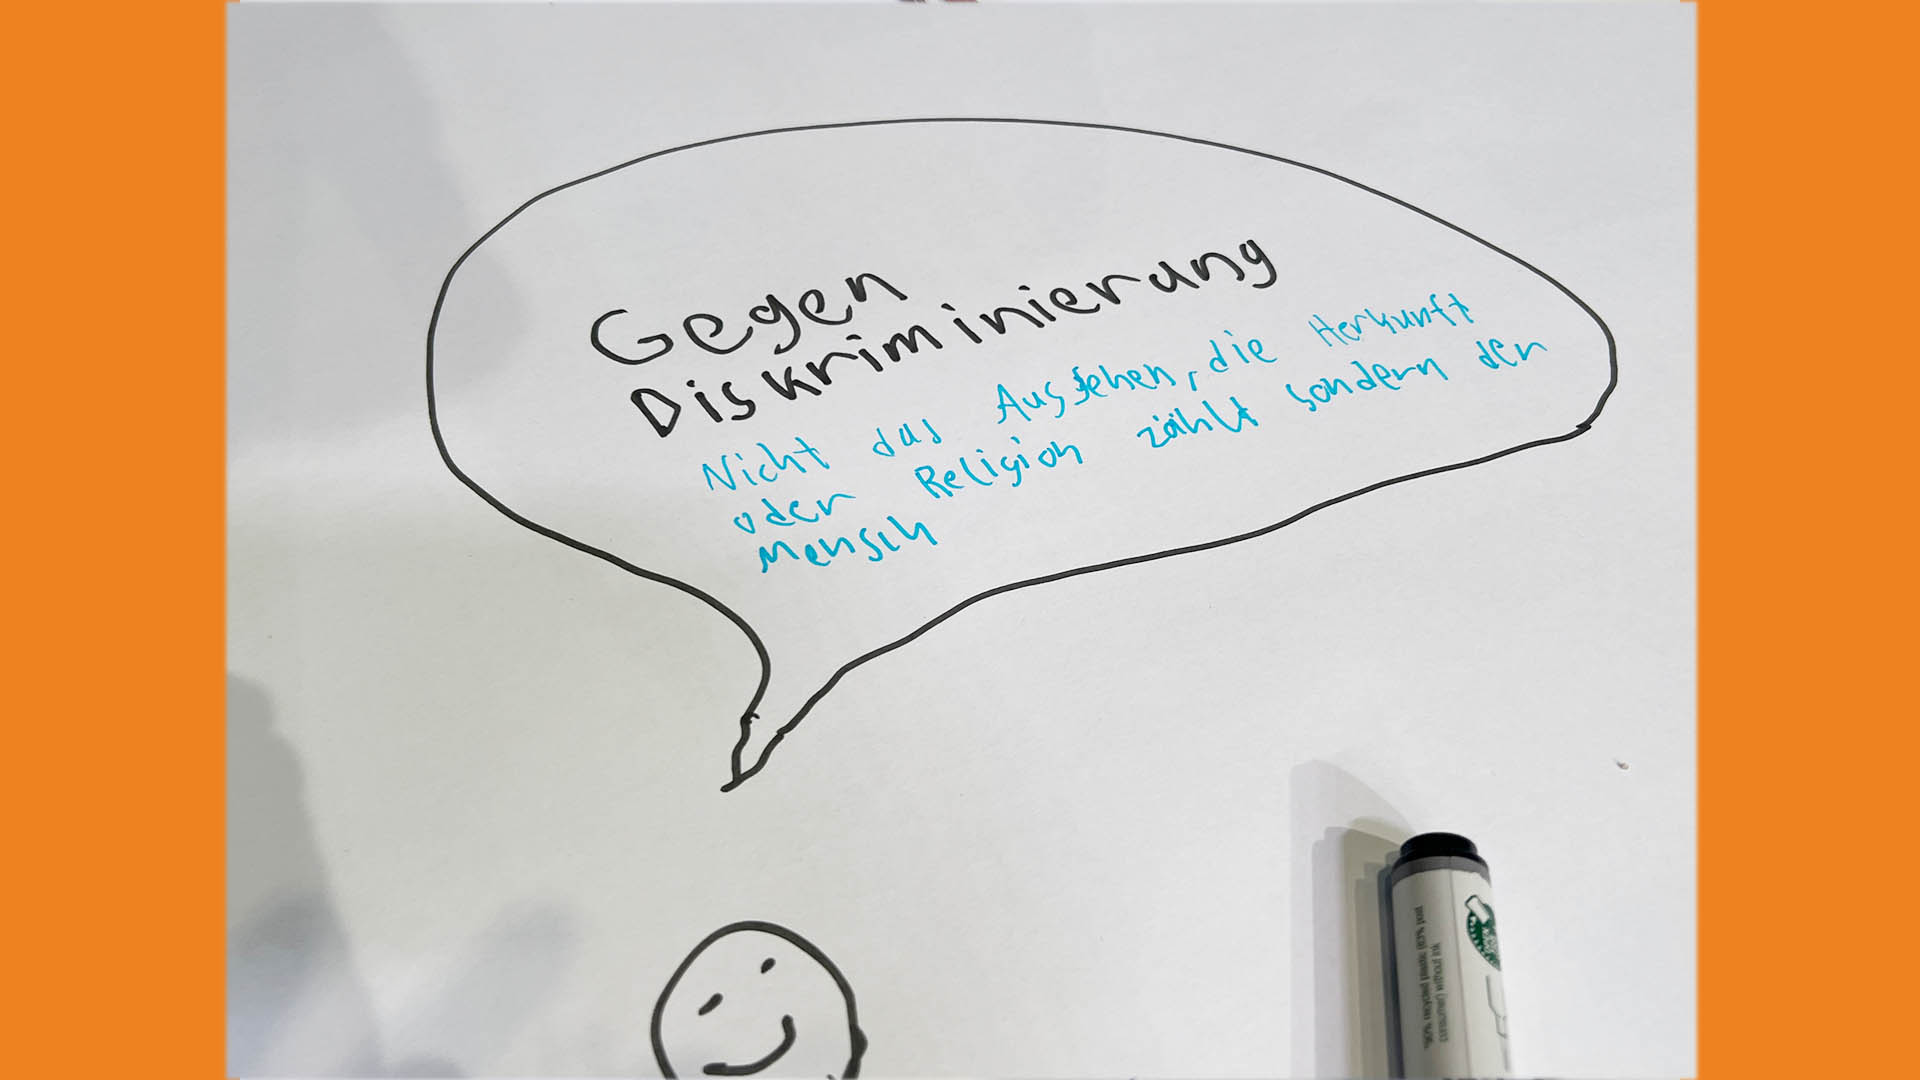 Gegen
Diskriminierung
Nicht das Aussehen, die Herkunft
oder Religion zählt sondern der
Mensch